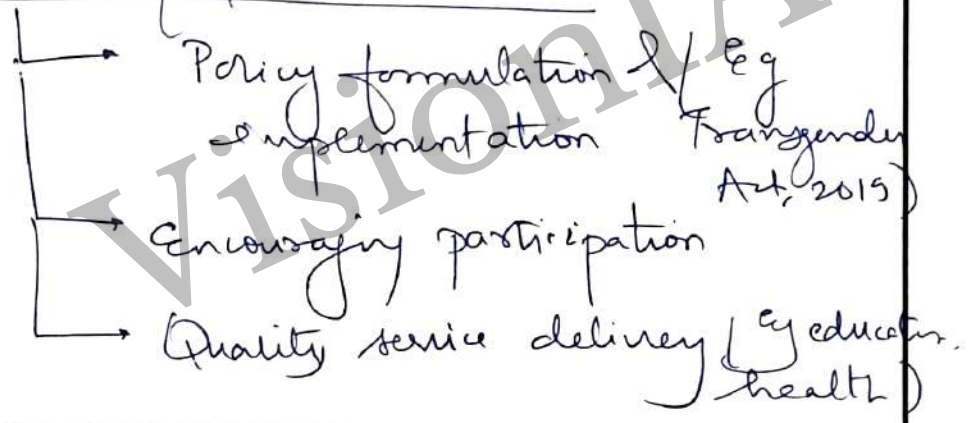 Policy formulation & (Eg
implementation Transgender
Act, 2019)
Encouraging participation
Quality service delivery (Eg education,
health)
VisionIA